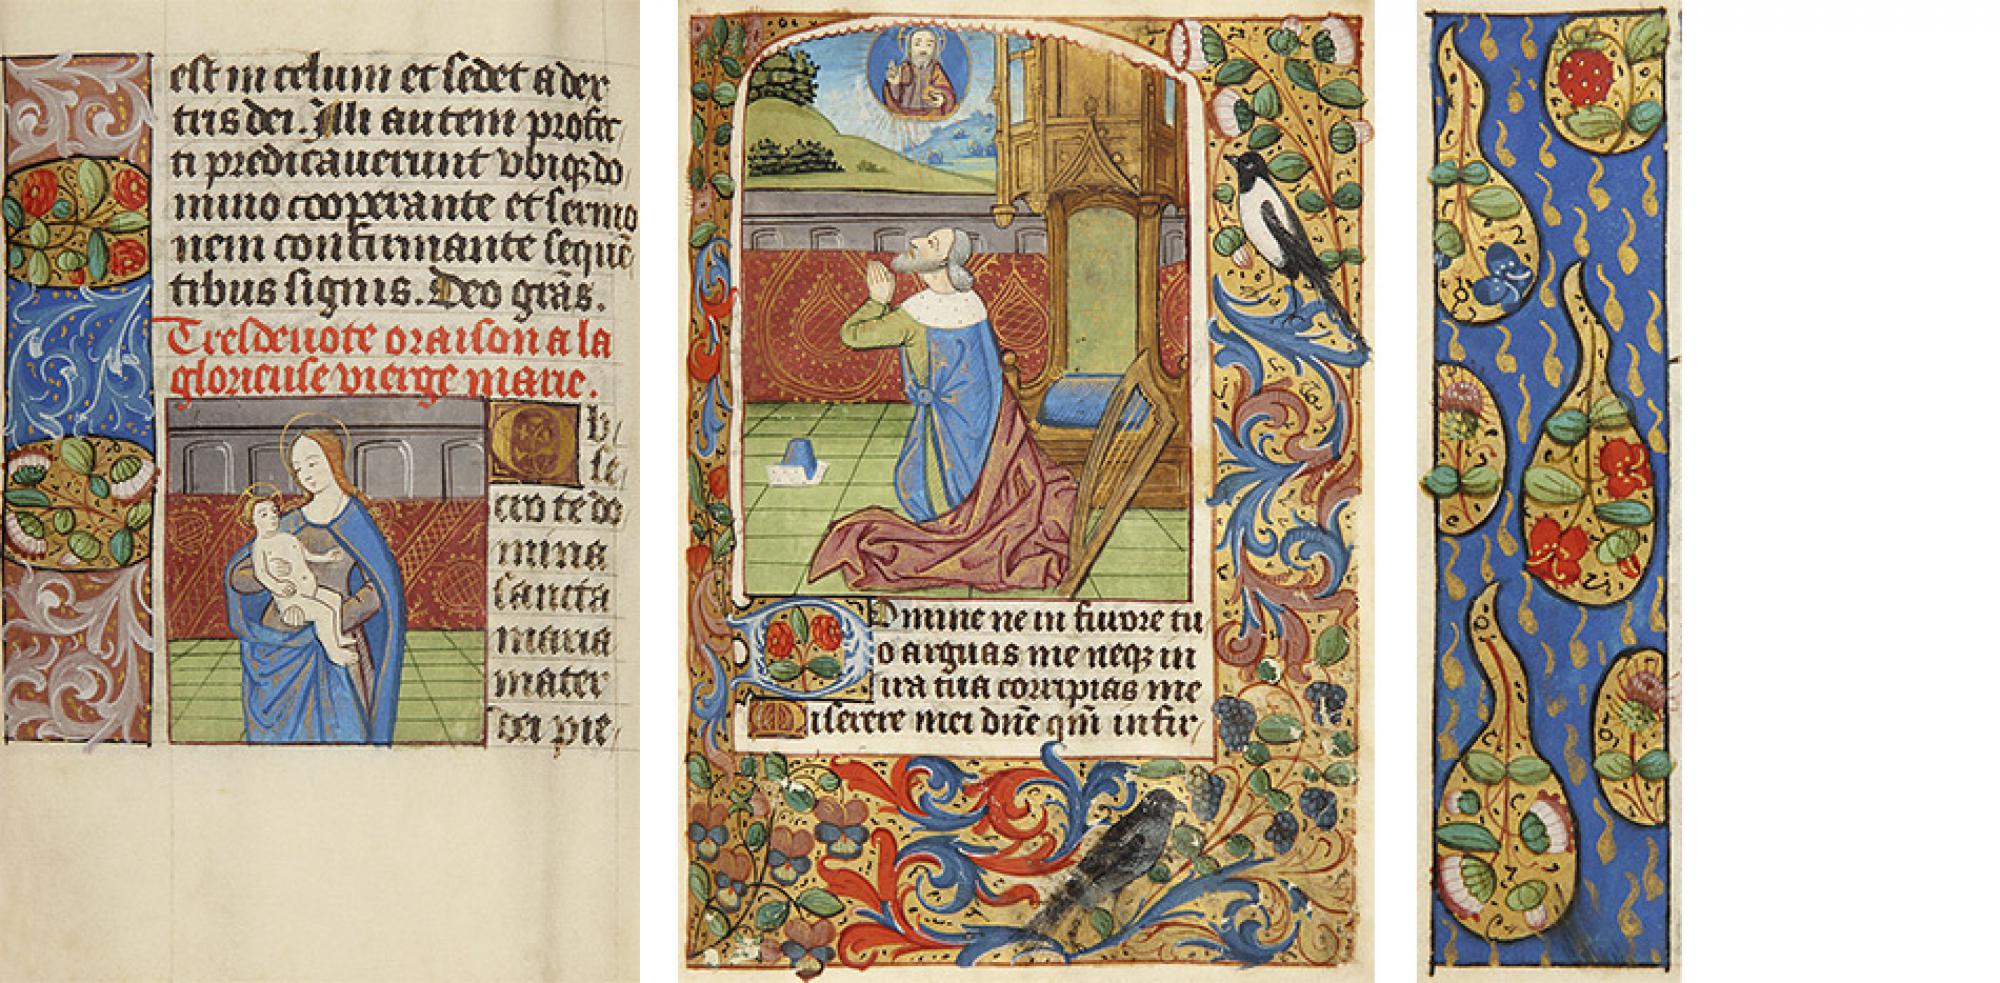 est in celum et sedet a dex
tris dei. Illi autem profec
ti predicauerunt vbiqꝫ do
mino cooperante et sermo
nem confirmante sequē
tibus signis. Deo grās.
Tresdeuote oraison a la
glorieuse vierge marie.
Ob
se
cro te do
mina
sancta
maria
mater
dei pie
Domine ne in furore tu
o arguas me neqꝫ in
ira tua corripias me
Miserere mei dn̄e qm̄ infir